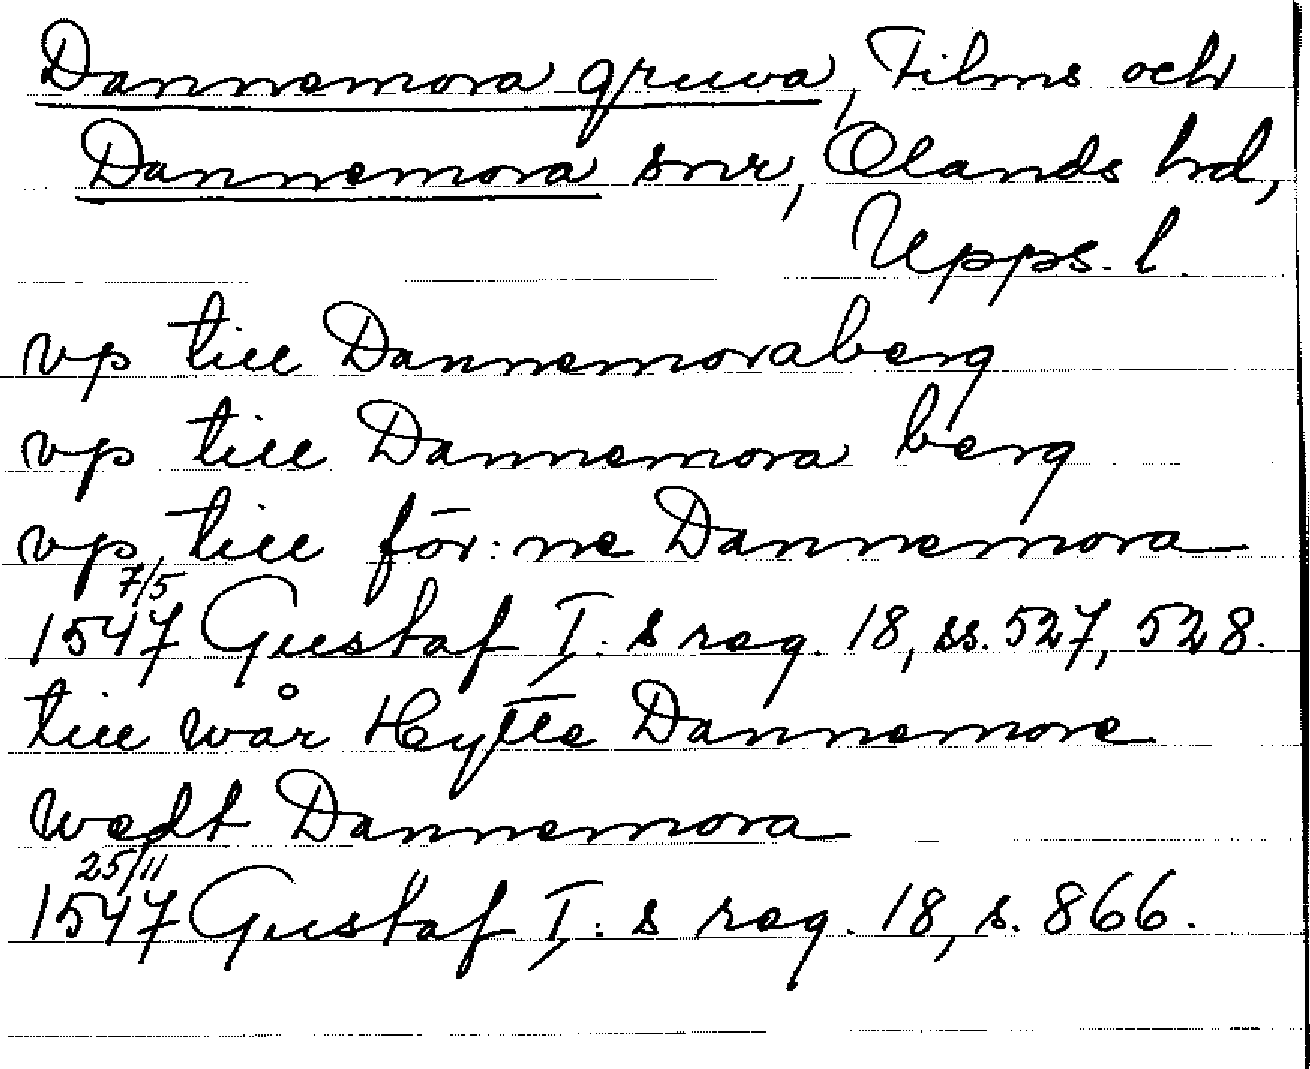 Dannemora gruva, Films och
Dannemora snr, Olands hd,
Upps. l.
vp till Dannemoraberg
vp till Dannemora berg
vp till för:ne Dannemora
7/5
1547 Gustaf I:s reg. 18, ss. 527, 528.
till wår Hytte Dannemore
wedt Dannemora
25/11
1547 Gustaf I:s reg. 18, s. 866.